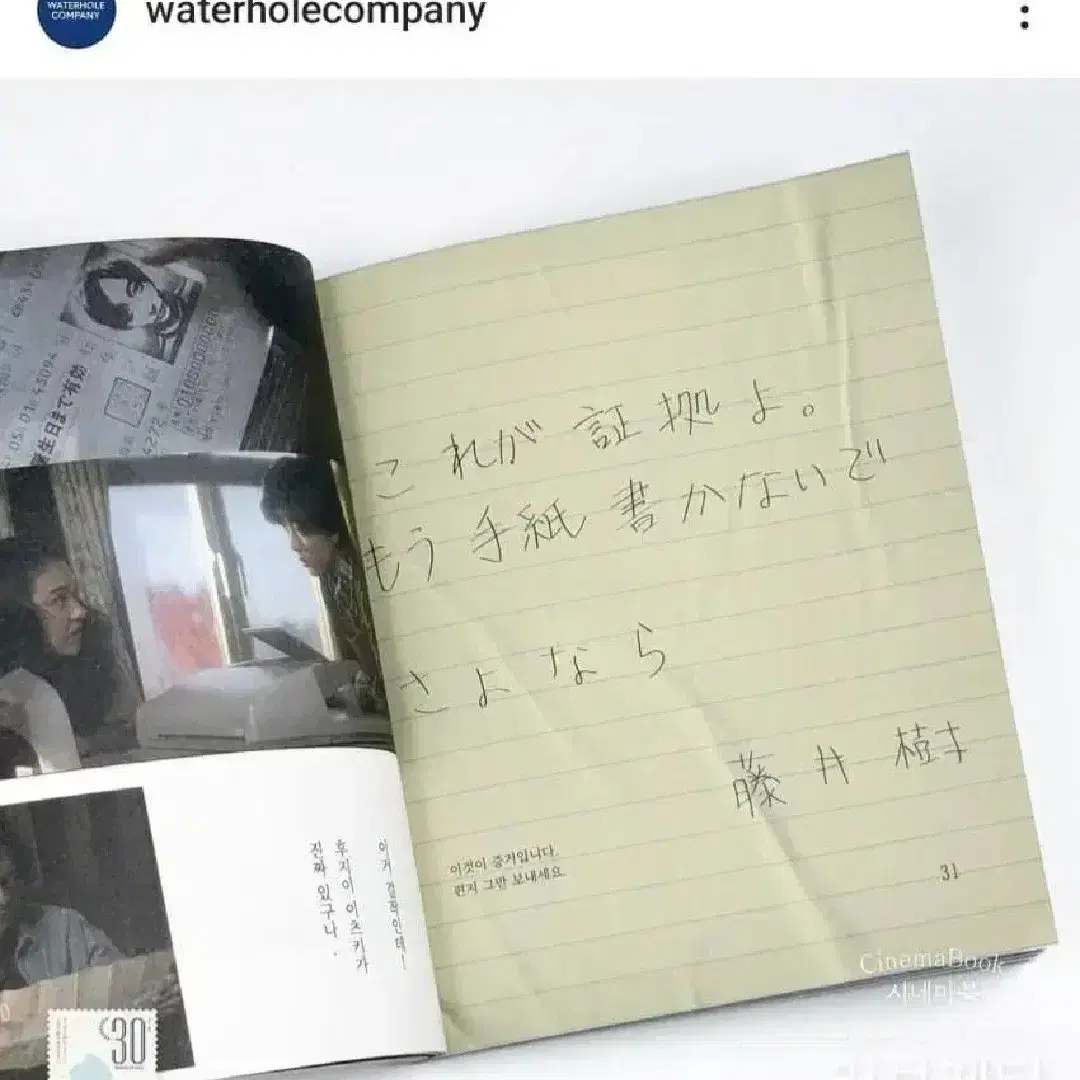 WATERHOLE
COMPANY
waterholecompany
生日まで有効
이거 걸작인데!
후지이 이츠키가
진짜 있구나.
30
これが 証拠よ。
もう手紙書かないで
さよなら
藤井 樹
이것이 증거입니다.
편지 그만 보내세요.
31
CinemaBook
시네마북